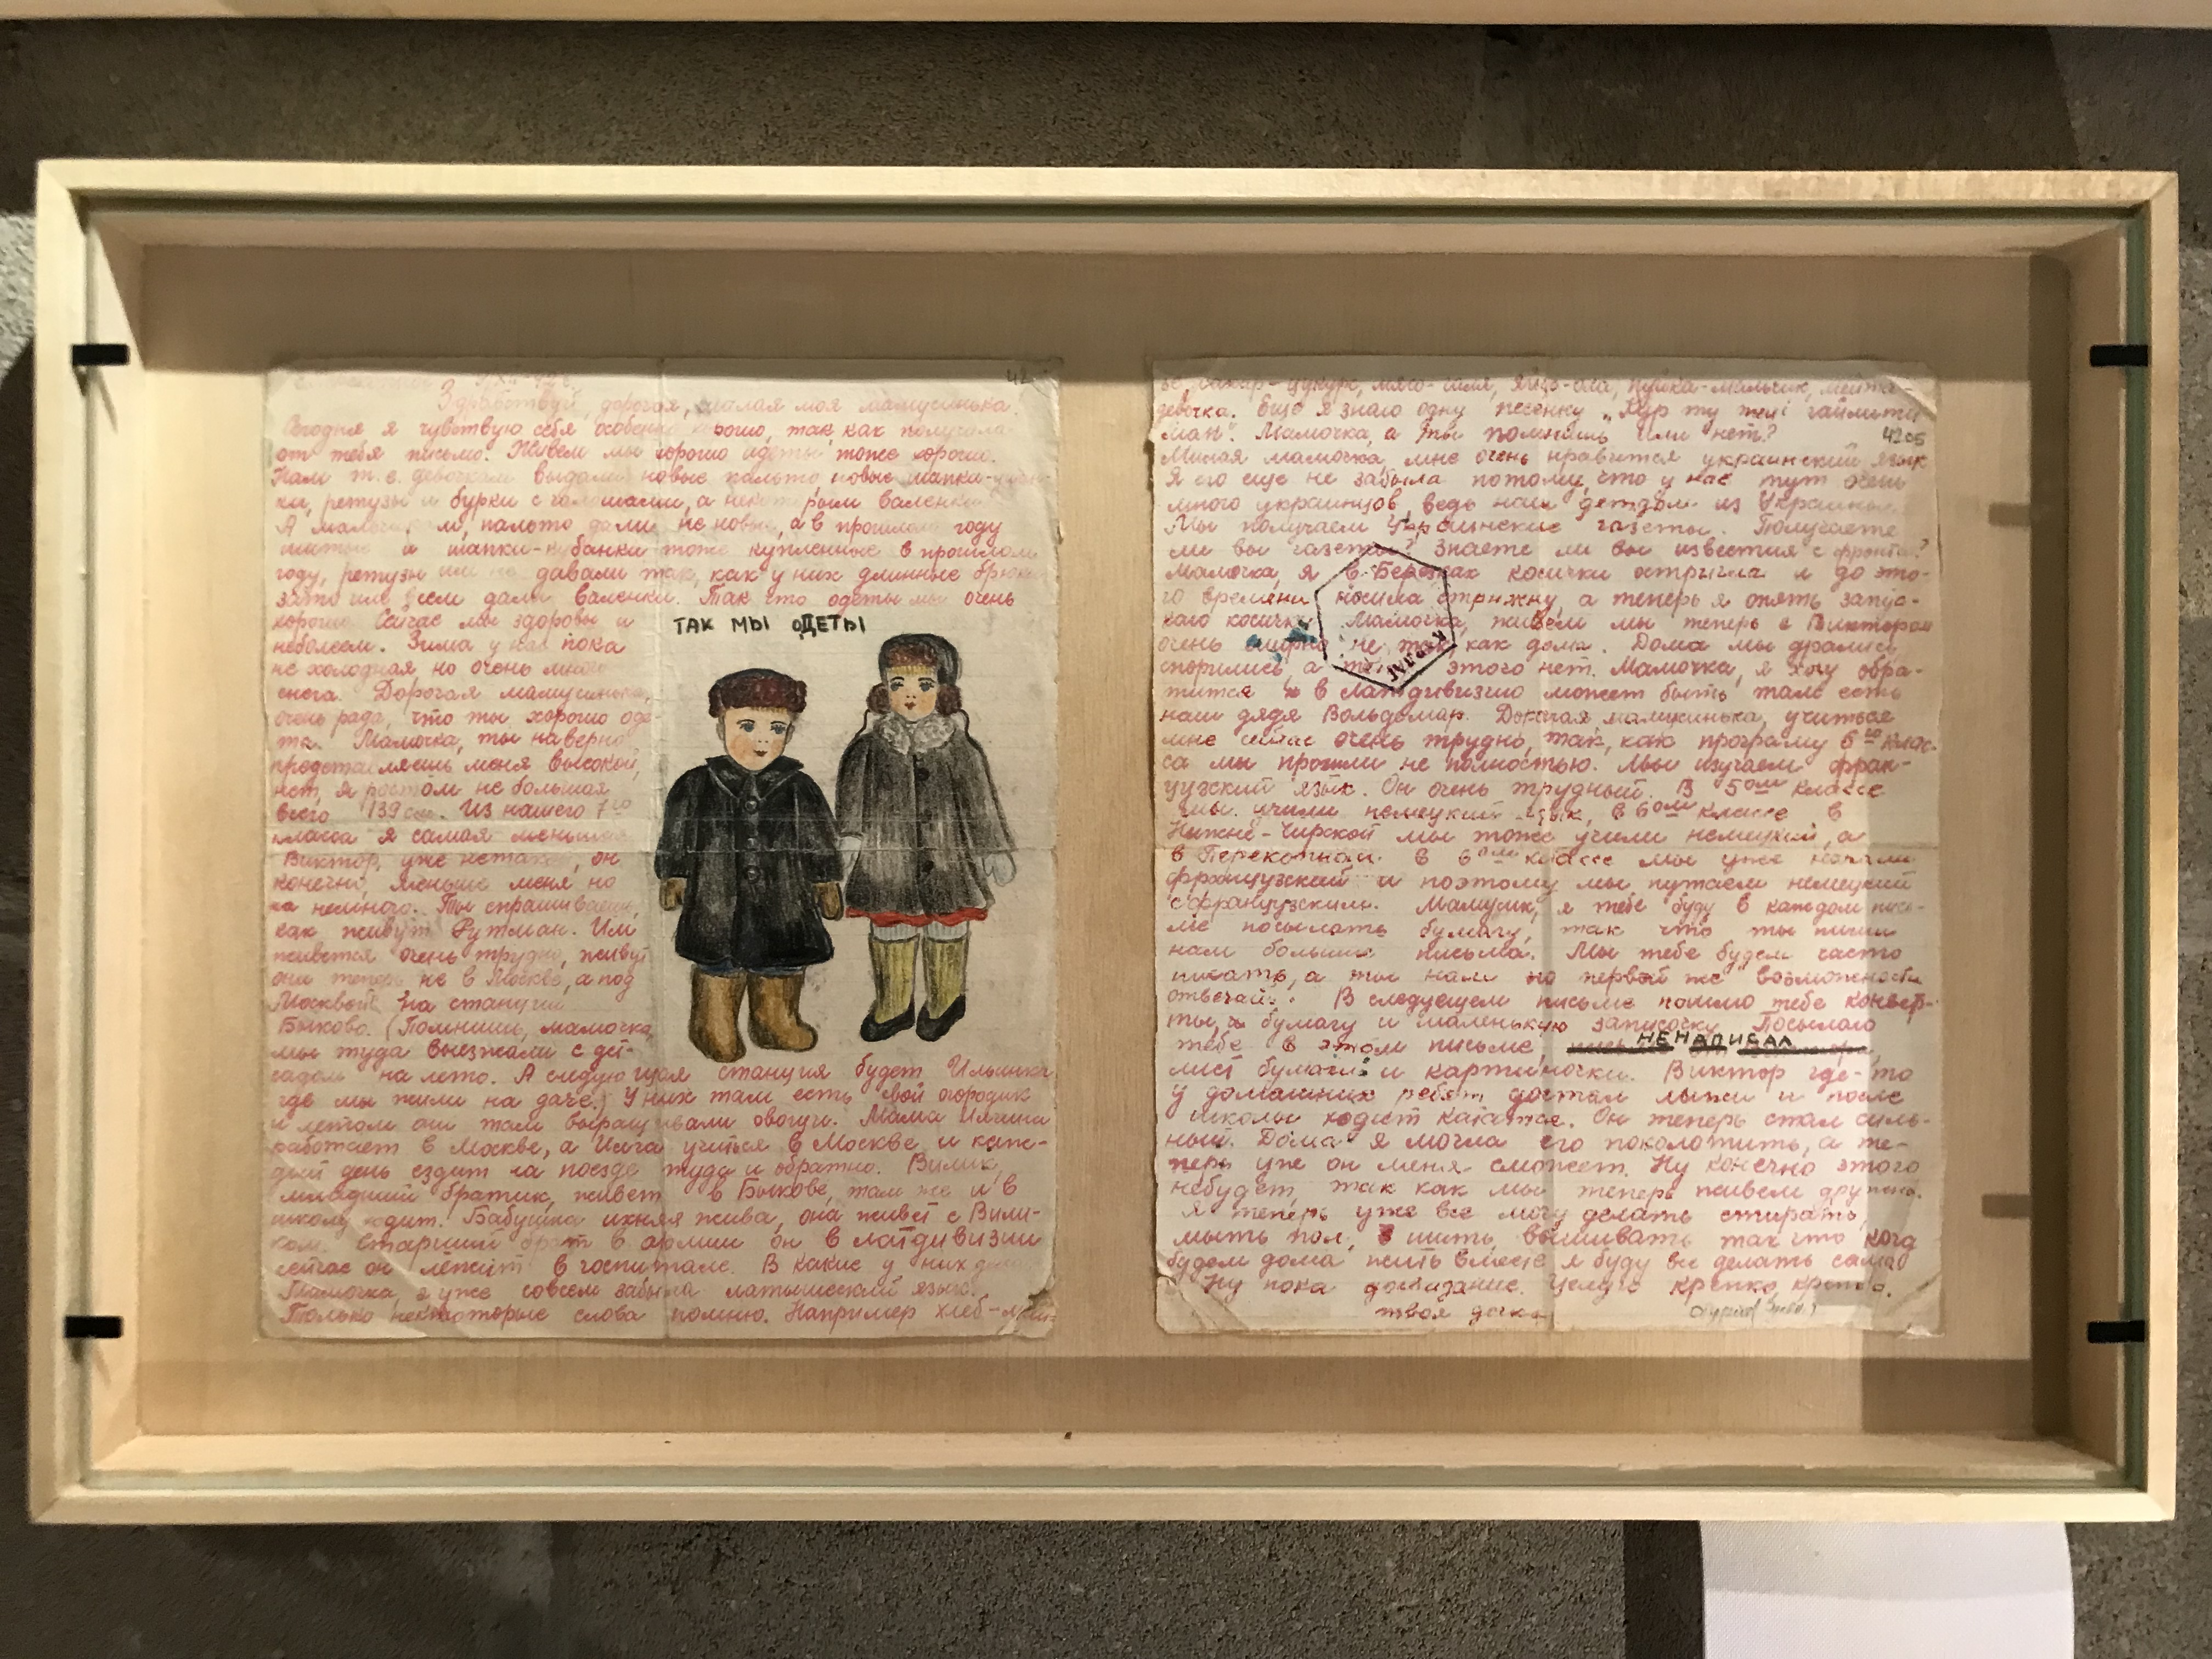 42
Здравствуй, дорогая, милая моя мамусинька!
Сегодня я чувствую себя особенно хорошо, так как получила
от тебя письмо. Живем мы хорошо одеты тоже хорошо.
Нам т. е. девочкам выдали новые пальто, новые шапки-
ки, ретузы и бурки с галошами, а некоторым валенки.
А мальчикам, пальто дали не новые, а в прошлом году
шитые и шапки-кубанки тоже купленные в прошлом
году, ретузы им не давали так, как у них длинные брюки
зато им всем дали валенки. Так что одеты мы очень
хорошо. Сейчас мы здоровы и
неболеем. Зима у нас пока
не холодная но очень много
снега. Дорогая мамусинька,
очень рада, что ты хорошо оде-
та. Мамочка, ты наверно
представляешь меня высокой,
нет, я ростом не большая
всего 139 см. Из нашего 7го
класса я самая меньшая
Виктор, уже нетакой, он
конечно, меньше меня, но
на немного. Ты спрашиваешь,
как живут Рутман. Им
живется очень трудно, живут
они теперь не в Москве, а под
Москвой на станции
Быково. (Помнишь, мамочка,
мы туда выезжали с дет-
садом на лето. А следующая станция будет Ильинка
где мы жили на даче.) У них там есть свой огородик
и летом они там выращивали овощи. Мама Илгина
работает в Москве, а учиться в Москве и каж-
дый день ездит на поезде туда и обратно. Вилик,
младший братик, живет в Быкове, там же и в
школу ходит. Бабушка ихняя жива, она живет с Вили-
ком. Старший брат в армии он в латдивизии
сейчас он лежит в госпитале. В какие у них
Мамочка, я уже совсем забыла латышский язык.
Только некоторые слова помню. Например хлеб-май-
ТАК МЫ ОДЕТЫ
сахар-цукурс, мясо-галя, пушка-мальчик, мейта-
девочка. Еще я знаю одну песенку „Кур ту теци гайлити
ман". Мамочка, а ты помнишь или нет?
42об
Милая мамочка, мне очень нравится украинский язык
Я его еще не забыла потому, что у нас тут очень
много украинцов, ведь наш детдом из Украины.
Мы получаем Украинские газеты. Получаете
ли вы газеты? Знаете ли вы известия с фронта?
Мамочка, я в Березках косички остригла и до это-
го времени носила стрижку, а теперь я опять запус-
каю косички. Мамочка, живем мы теперь с Виктором
очень дружно не так как дома. Дома мы дрались,
спорились, а этого нет. Мамочка, я хочу обра-
титься в латдивизию может быть там есть
наш дядя Вольдомар. Дорогая мамусинька, учиться
мне сейчас очень трудно, так, как програму 6го клас-
са мы прошли не полностью. Мы изучаем фран-
цузский язык. Он очень трудный. В 5ом классе
мы учили немецкий язык, в 6ом классе в
Нижне-Чирской мы тоже учили немецкий, а
в Перекопной в 6ом классе мы уже начали
французский и поэтому мы путаем немецкий
с французским. Мамусик, я тебе буду в каждом пись-
ме посылать бумагу, так что ты пиши
нам больше письма. Мы тебе будем часто
писать, а ты нам по первой же возможности
отвечай. В следующем письме пошлю тебе конвер-
ты, бумагу и маленькую записочку. Посылаю
тебе в этом письме, НЕНАПИСАЛ
лист бумаги и картиночки. Виктор где-то
у домашних ребят достал лыжи и после
школы ходит катался. Он теперь стал силь-
ный. Дома я могла его поколотить, а те-
перь уже он меня сможет. Ну конечно этого
небудет, так как мы теперь живем дружно.
Я теперь уже все могу делать стирать,
мыть пол, шить, вышивать так что когд
будем дома жить вместе я буду все делать сама
Ну пока досвидание. Целую крепко, крепко.
твоя дочка